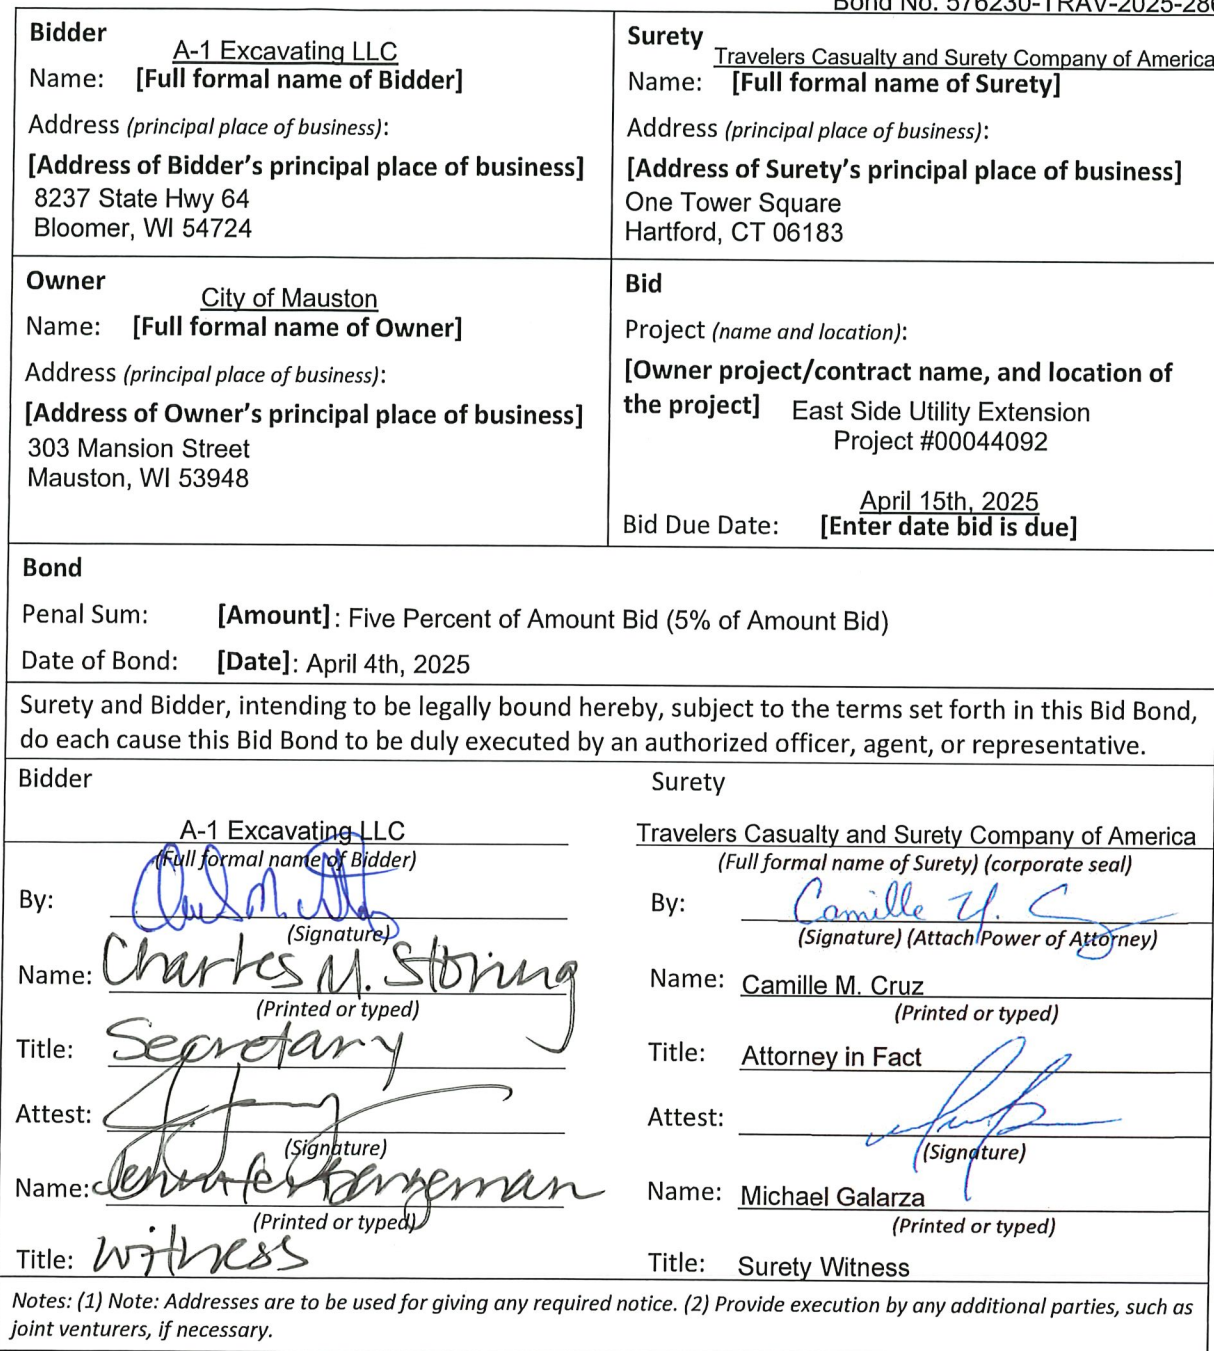 Bond No. 576230-TRAV-2025-286
Bidder
A-1 Excavating LLC
Name: [Full formal name of Bidder]
Address (principal place of business):
[Address of Bidder's principal place of business]
8237 State Hwy 64
Bloomer, WI 54724
Surety
Travelers Casualty and Surety Company of America
Name: [Full formal name of Surety]
Address (principal place of business):
[Address of Surety's principal place of business]
One Tower Square
Hartford, CT 06183
Owner
City of Mauston
Name: [Full formal name of Owner]
Address (principal place of business):
[Address of Owner's principal place of business]
303 Mansion Street
Mauston, WI 53948
Bid
Project (name and location):
[Owner project/contract name, and location of
the project] East Side Utility Extension
Project #00044092
April 15th, 2025
Bid Due Date: [Enter date bid is due]
Bond
Penal Sum: [Amount]: Five Percent of Amount Bid (5% of Amount Bid)
Date of Bond: [Date]: April 4th, 2025
Surety and Bidder, intending to be legally bound hereby, subject to the terms set forth in this Bid Bond,
do each cause this Bid Bond to be duly executed by an authorized officer, agent, or representative.
Bidder
A-1 Excavating LLC
(Full formal name of Bidder)
By:
(Signature)
Name: Charles M. Storing
(Printed or typed)
Title: Secretary
Attest:
(Signature)
Name:
(Printed or typed)
Title: Witness
Surety
Travelers Casualty and Surety Company of America
(Full formal name of Surety) (corporate seal)
By: Camille M. C
(Signature) (Attach Power of Attorney)
Name: Camille M. Cruz
(Printed or typed)
Title: Attorney in Fact
Attest:
(Signature)
Name: Michael Galarza
(Printed or typed)
Title: Surety Witness
Notes: (1) Note: Addresses are to be used for giving any required notice. (2) Provide execution by any additional parties, such as
joint venturers, if necessary.